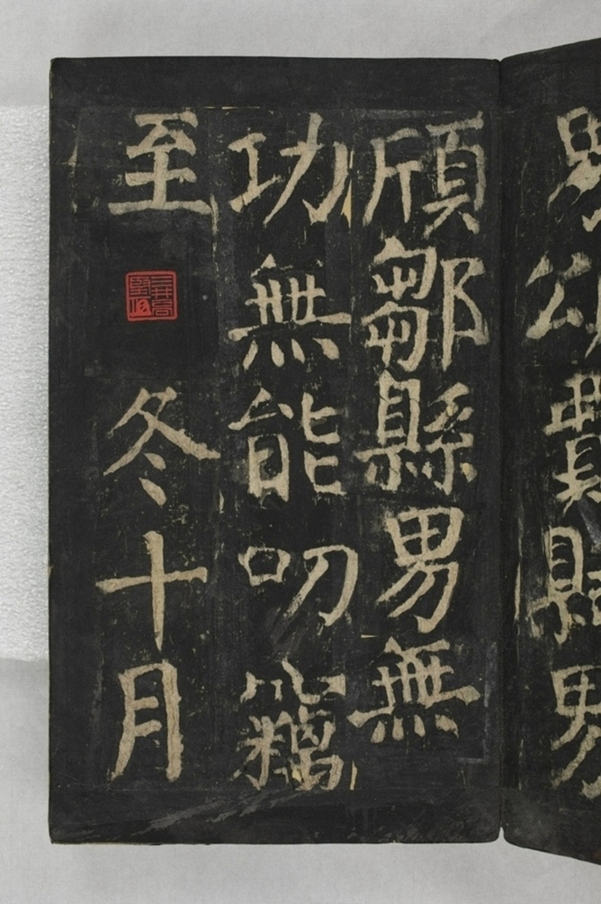 男頌費縣男
頎鄒縣男無
功無能叨竊
至冬十月